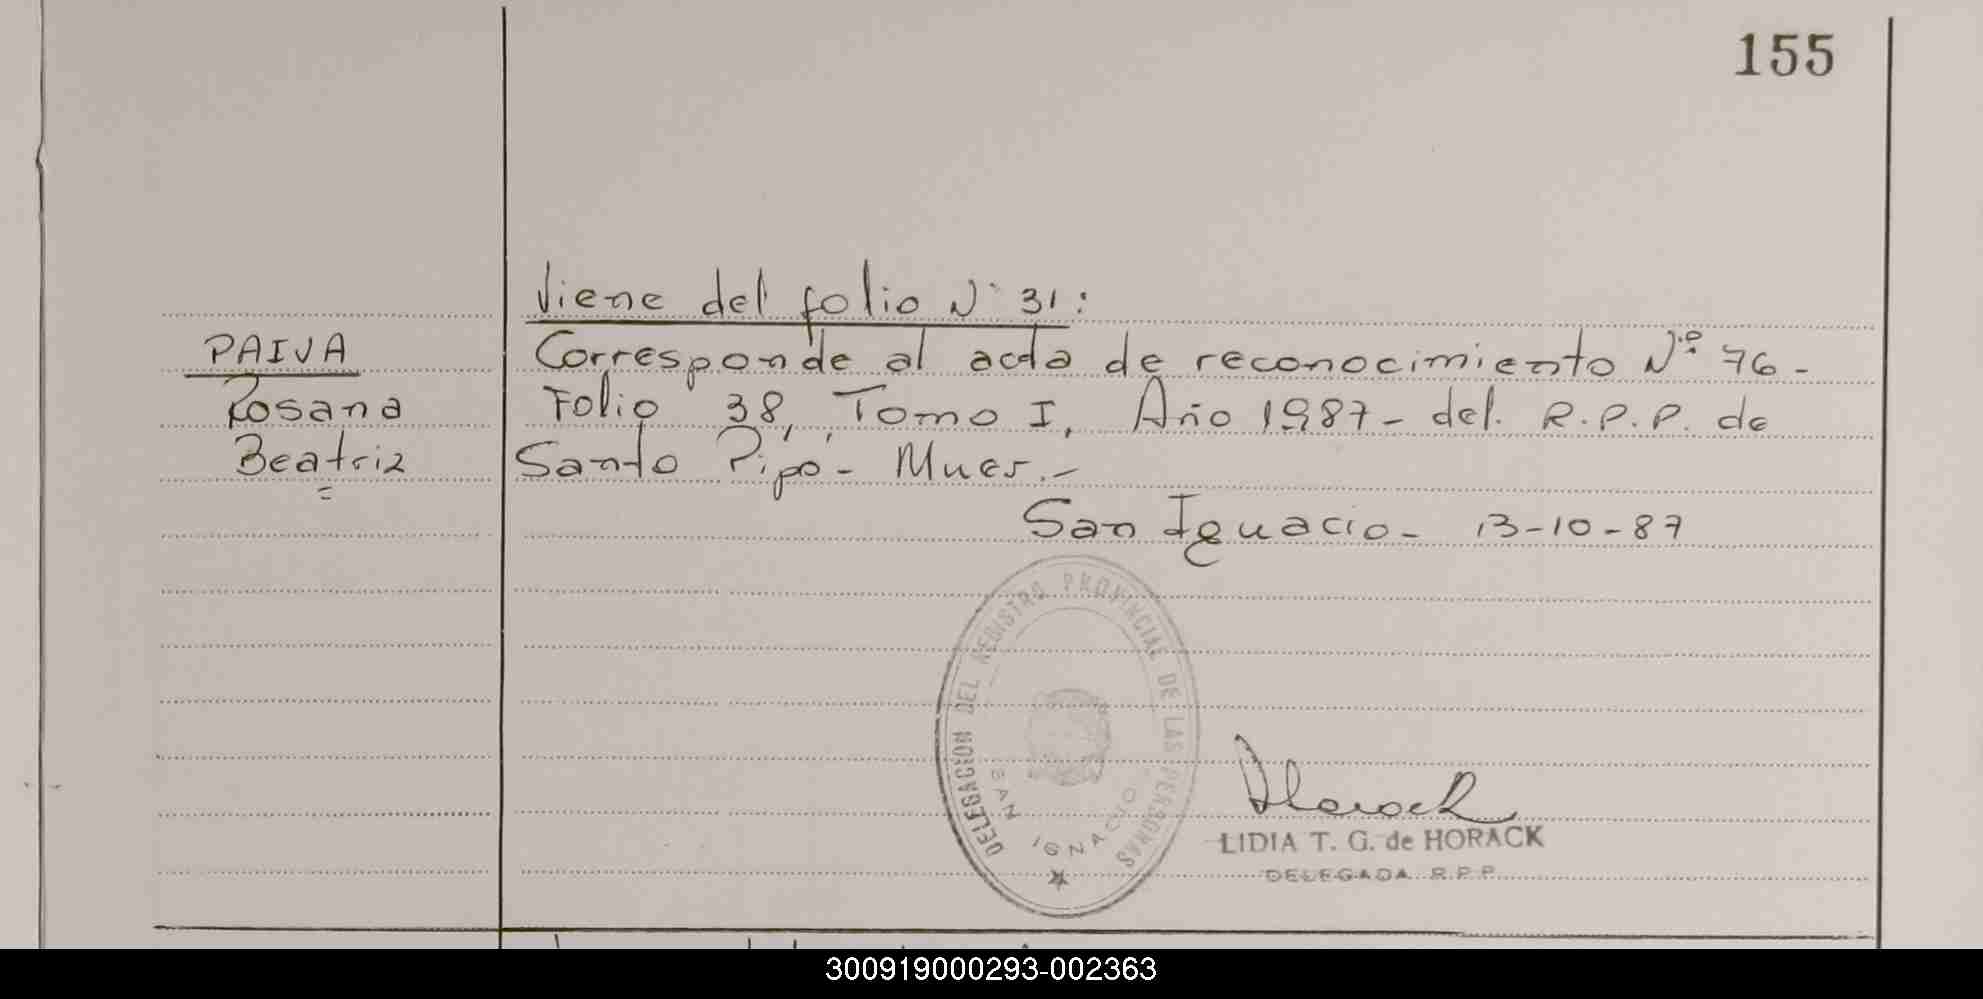 155
Viene del folio N° 31:
PAIVA
Rosana
Beatriz
Corresponde al acta de reconocimiento N° 76-
Folio 38, Tomo I, Año 1987- del. R.P.P. de
Santo Pipó- Mnes.-
San Ignacio- 13-10-87
DELEGACION DEL REGISTRO PROVINCIAL DE LAS PERSONAS
SAN IGNACIO
Horack
LIDIA T. G. de HORACK
DELEGADA R.P.P.
300919000293-002363